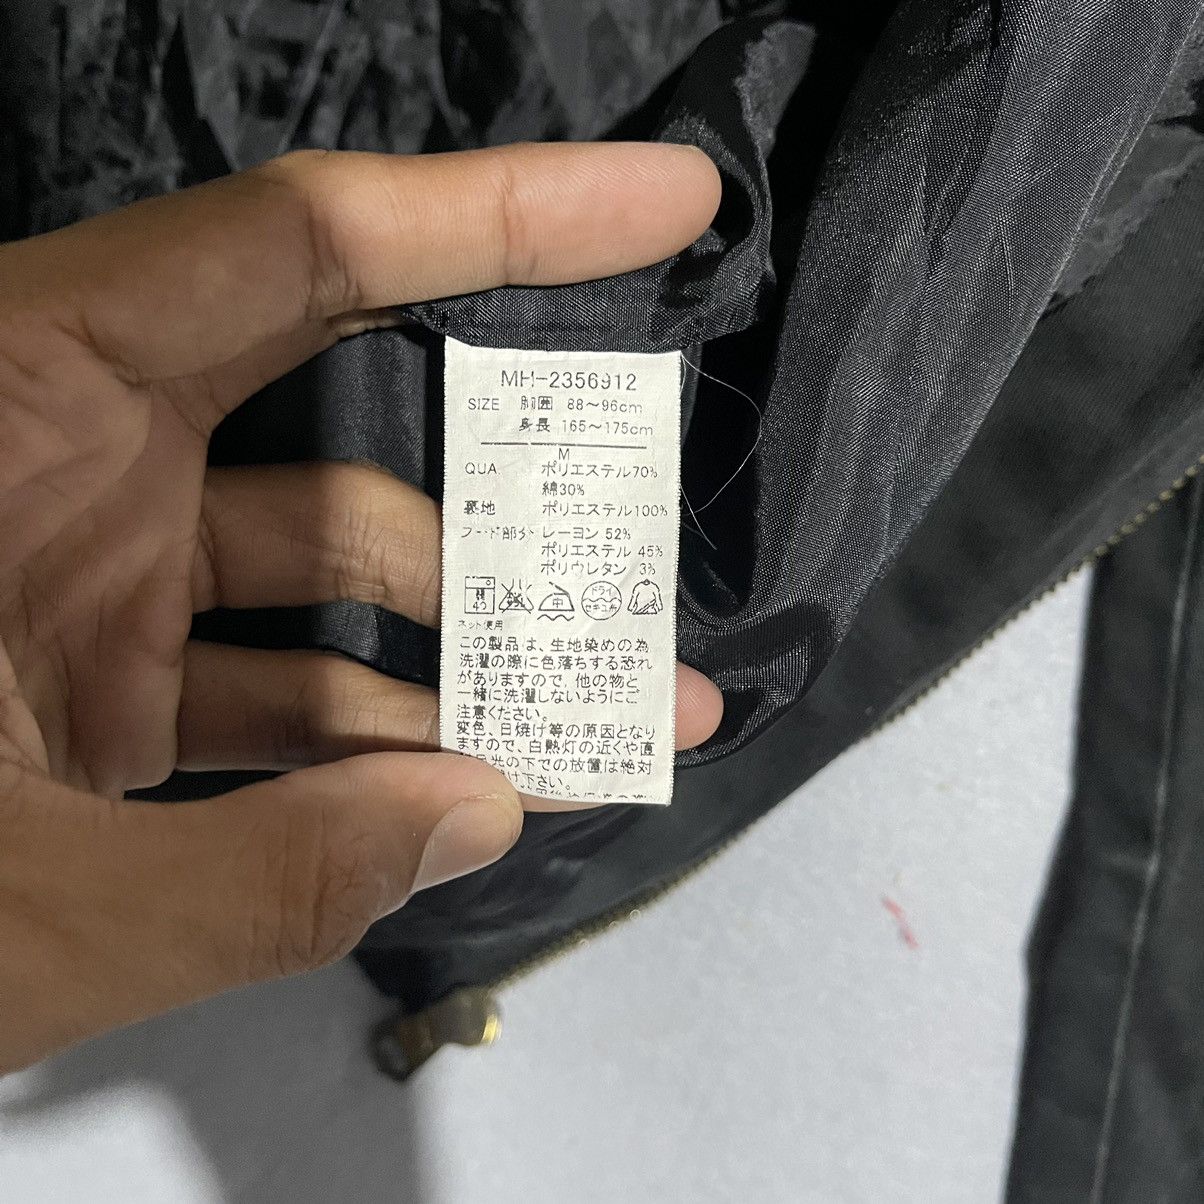 MH-2356912
SIZE 胸囲 88～96cm
身長 165～175cm
M
QUA. ポリエステル70%
綿30%
裏地 ポリエステル100%
フード部分 レーヨン 52%
ポリエステル 45%
ポリウレタン 3%
弱 40 中 ドライ セキユ系
ネット使用
この製品は、生地染めの為
洗濯の際に色落ちする恐れ
がありますので、他の物と
一緒に洗濯しないようにご
注意ください。
変色、日焼け等の原因となり
ますので、白熱灯の近くや直
光の下での放置は絶対
け下さい。